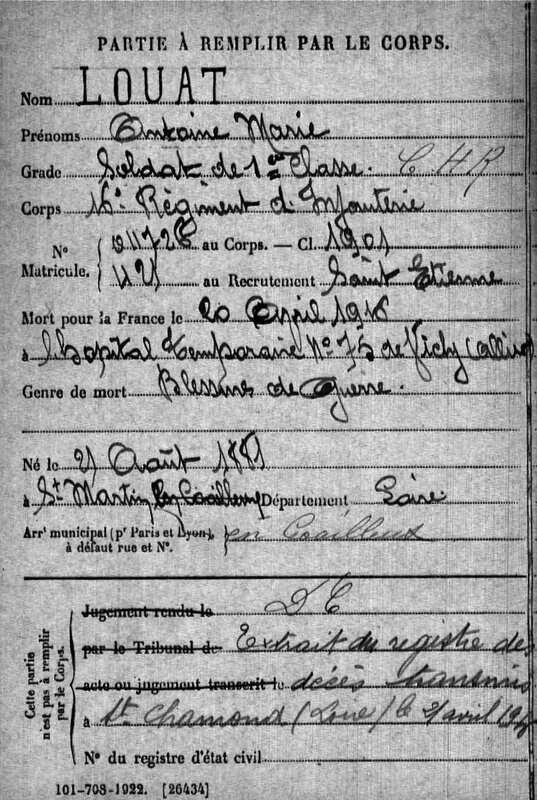 PARTIE À REMPLIR PAR LE CORPS.
Nom LOUAT
Prénoms Antoine Marie
Grade Soldat de 1ère Classe. C H R
Corps 16e Régiment d'Infanterie
N° Matricule. 011728 au Corps. — Cl. 1901
421 au Recrutement Saint Etienne
Mort pour la France le 20 Avril 1916
à l'hopital temporaire N° 75 de Vichy (Allier)
Genre de mort Blessures de Guerre.
Né le 21 Août 1881
à St Martin en Coailleux Département Loire
Arrt municipal (pr Paris et Lyon), à défaut rue et N°. en Coailleux
Cette partie n'est pas à remplir par le Corps.
Jugement rendu le D C
par le Tribunal de Extrait du registre des
acte ou jugement transcrit le décès transmis
à St Chamond (Loire) le avril
N° du registre d'état civil
101-708-1922. [26434]